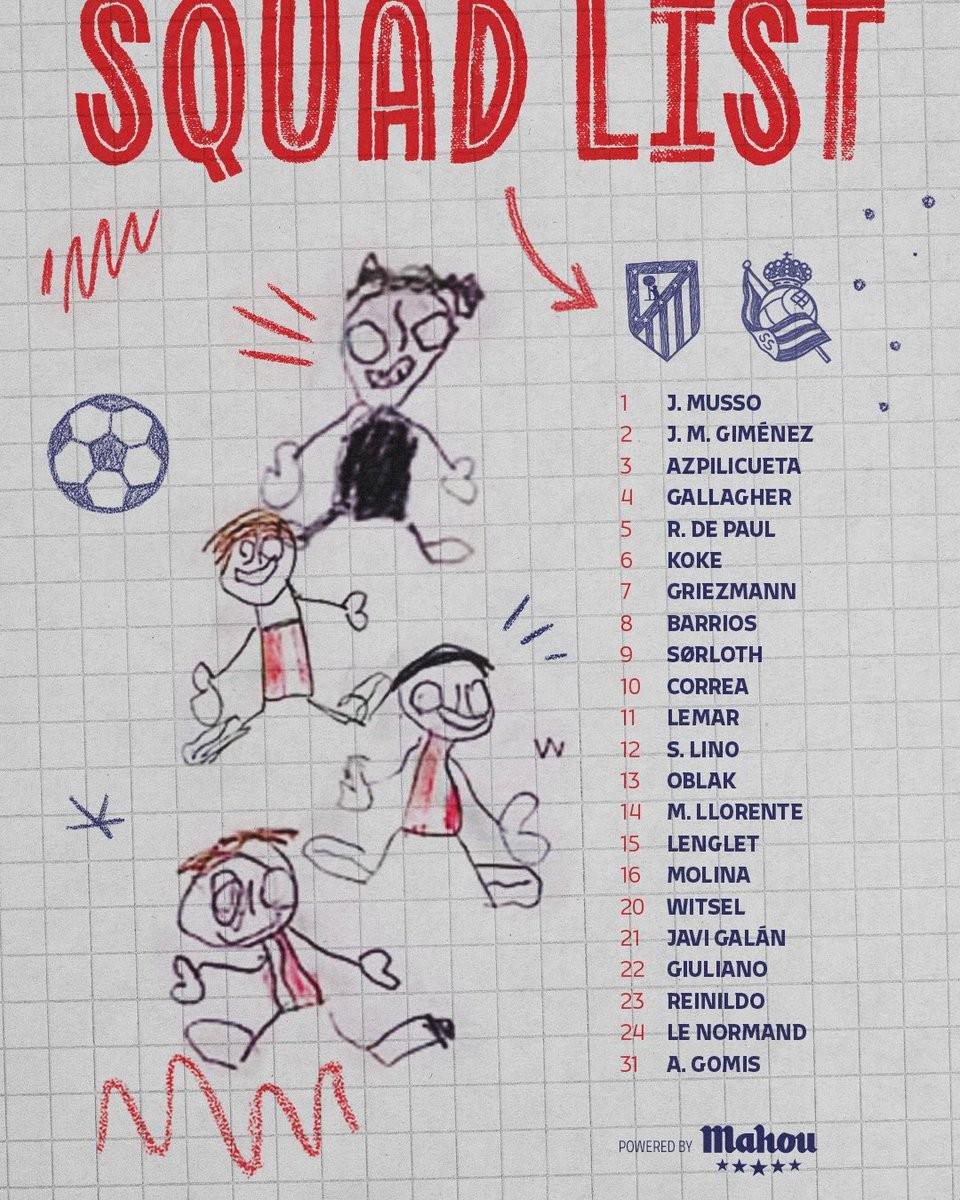 SQUAD LIST
SS
1 J. MUSSO
2 J. M. GIMÉNEZ
3 AZPILICUETA
4 GALLAGHER
5 R. DE PAUL
6 KOKE
7 GRIEZMANN
8 BARRIOS
9 SØRLOTH
10 CORREA
11 LEMAR
12 S. LINO
13 OBLAK
14 M. LLORENTE
15 LENGLET
16 MOLINA
20 WITSEL
21 JAVI GALÁN
22 GIULIANO
23 REINILDO
24 LE NORMAND
31 A. GOMIS
POWERED BY Mahou